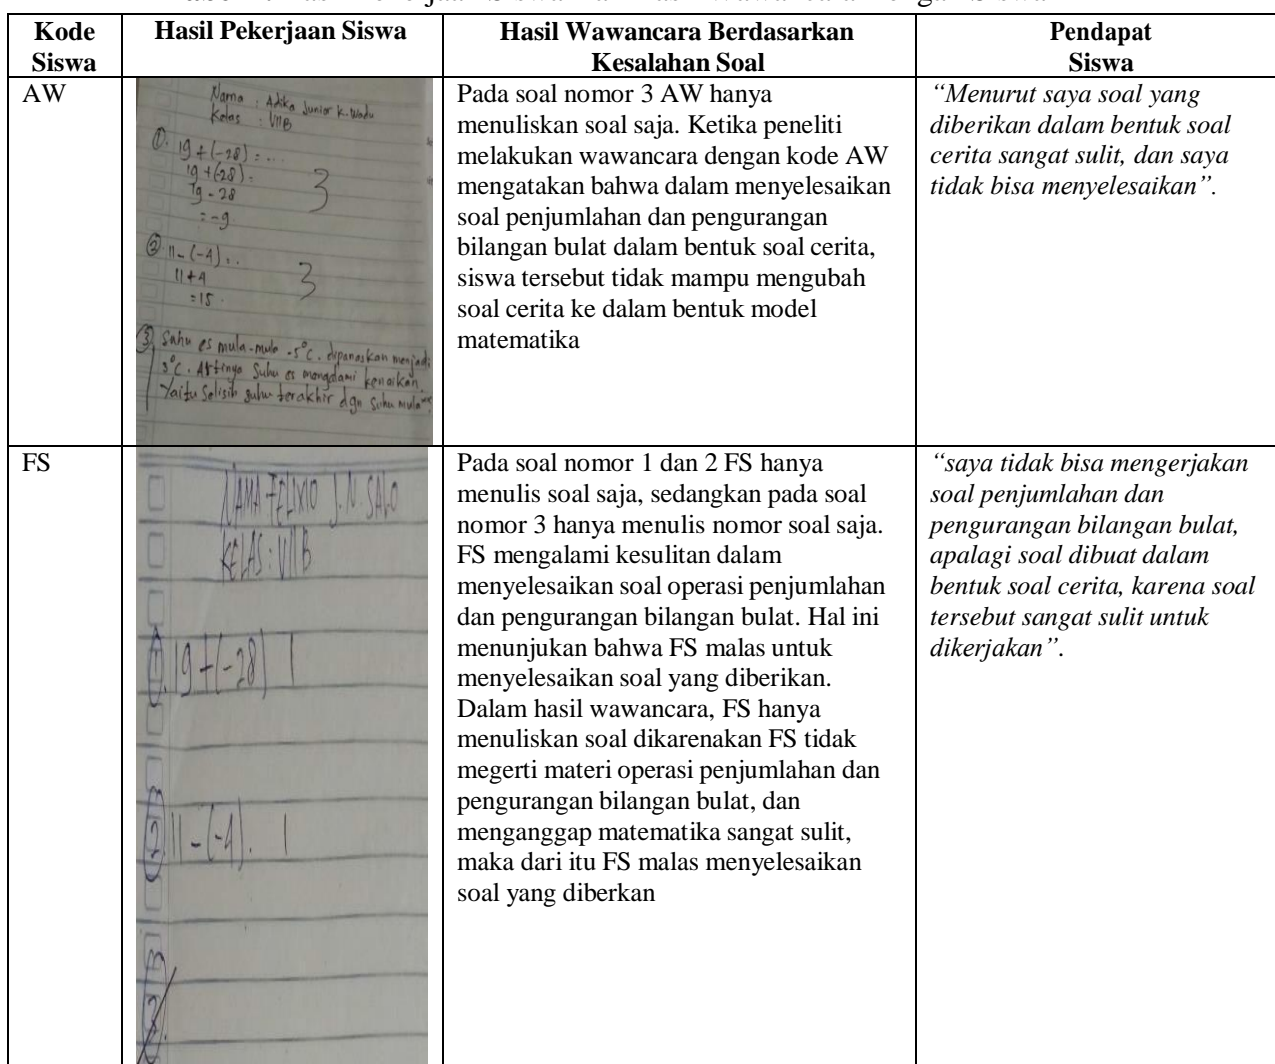 Kode Siswa
Hasil Pekerjaan Siswa
Hasil Wawancara Berdasarkan Kesalahan Soal
Pendapat Siswa
AW
Nama : Adika Junior K. Wadu
Kelas : VIIB
1. 19 + (-28) = ...
19 + (-28) =
19 - 28
= -9
3
2. 11 - (-4) = ..
11 + 4
= 15 .
3
3 Suhu es mula-mula -5°C. dipanaskan menjadi
3°C. Artinya Suhu es mengalami kenaikan
Yaitu Selisih suhu terakhir dgn Suhu mula
Pada soal nomor 3 AW hanya
menuliskan soal saja. Ketika peneliti
melakukan wawancara dengan kode AW
mengatakan bahwa dalam menyelesaikan
soal penjumlahan dan pengurangan
bilangan bulat dalam bentuk soal cerita,
siswa tersebut tidak mampu mengubah
soal cerita ke dalam bentuk model
matematika
“Menurut saya soal yang
diberikan dalam bentuk soal
cerita sangat sulit, dan saya
tidak bisa menyelesaikan”.
FS
NAMA FELIXIO J. N. SALO
KELAS : VIIB
1. 19 + (-28) 1
2. 11 - (-4). 1
3
Pada soal nomor 1 dan 2 FS hanya
menulis soal saja, sedangkan pada soal
nomor 3 hanya menulis nomor soal saja.
FS mengalami kesulitan dalam
menyelesaikan soal operasi penjumlahan
dan pengurangan bilangan bulat. Hal ini
menunjukan bahwa FS malas untuk
menyelesaikan soal yang diberikan.
Dalam hasil wawancara, FS hanya
menuliskan soal dikarenakan FS tidak
megerti materi operasi penjumlahan dan
pengurangan bilangan bulat, dan
menganggap matematika sangat sulit,
maka dari itu FS malas menyelesaikan
soal yang diberkan
“saya tidak bisa mengerjakan
soal penjumlahan dan
pengurangan bilangan bulat,
apalagi soal dibuat dalam
bentuk soal cerita, karena soal
tersebut sangat sulit untuk
dikerjakan”.